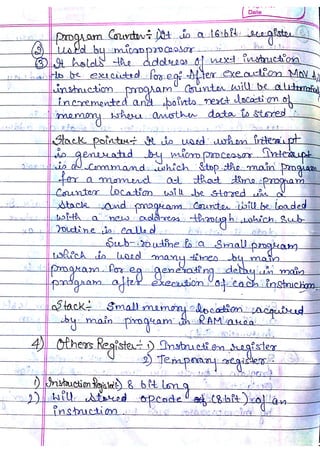 Date
Program Counter:- It is a 16-bit register
② used by microprocessor.
③ It holds the address of next instruction
to be executed for eg: After Execution MOV A,
instruction program counter will be
Incremented and points next location of
memory where another data is stored
Stack pointer:- It is used when
is generated by microprocessor
is a command which stop the main program
for a moment at that time program
Counter location will be stored in a
Stack and program counter will be loaded
with a new address through which sub-
routine is called.
Sub-routine is a small program
which is used many times by main
program for eg generating delay in main
program after execution of each instruction
Stack:- small memory location acquired
by main program in RAM area
4) Others Register:- 1) Instruction register
2) Temporary register:-
1) Instruction Register) 8 bit long
2) Will stored opcode of (8bit) of an
instruction.